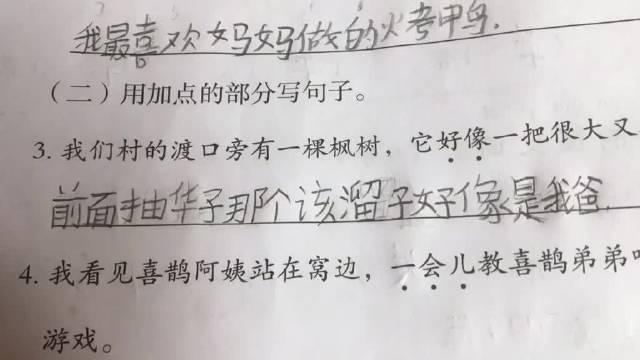 我最喜欢妈妈做的火考甲鸟.
（二）用加点的部分写句子。
3. 我们村的渡口旁有一棵枫树，它好像一把很大又
前面抽华子那个该溜子好像是我爸.
4. 我看见喜鹊阿姨站在窝边，一会儿教喜鹊弟弟
游戏。